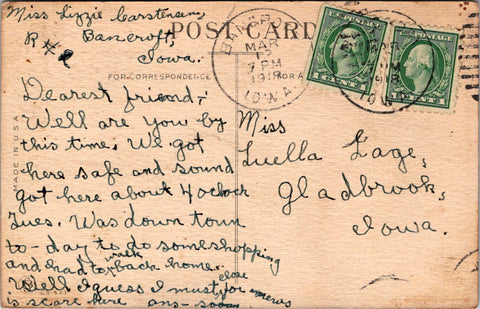 Miss Lizzie Carstensen,
R#2
Bancroft,
Iowa.
POST CARD
FOR CORRESPONDENCE
MAR
7 PM
1918
IOWA
U.S. POSTAGE
1 CENT 1
MADE IN U.S.A.
Dearest friend;
Well are you by
this time. We got
here safe and sound
got here about 4 o'clock
Tues. Was down town
to-day to do some shopping
and had to walk back home.
Well I guess I must close for news
is scare here ans-soon
Miss
Luella Gage,
Gladbrook,
Iowa.